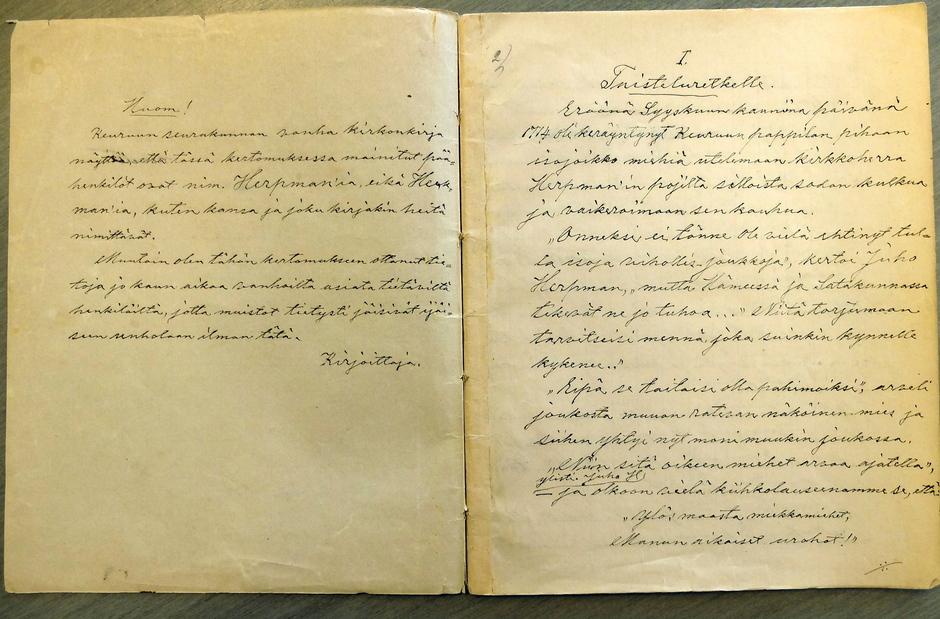 Huom!
Keuruun seurakunnan vanha kirkonkirja
näyttää, että tässä kertomuksessa mainitut pää-
henkilöt ovat nim. Herpman'ia, eikä Herk-
man'ia, kuten kansa ja joku kirjakin heitä
nimittävät.
Muutoin olen tähän kertomukseen ottanut tie-
toja jo kauan aikaa vanhoilta asiata tietäviltä
henkilöiltä, jotta muistot tietysti jäisivät
seen unholaan ilman tätä.
Kirjoittaja.
2)
I.
Taisteluretkelle.
Eräänä Syyskuun kauniina päivänä
1714 oli kerääntynyt Keuruun pappilan pihaan
isojoikko miehiä utelemaan kirkkoherra
Herpman'in pojilta silloista sodan kulkua
ja vaikeroimaan sen kauhua.
„Onneksi ei tänne ole vielä ehtinyt tul-
la isoja vihollis-joukkoja", kertoi Juho
Herpman, „mutta Hämeessä ja Satakunnassa
tekevät ne jo tuhoa..." Niitä torjumaan
tarvitseisi mennä, joka suinkin kynnelle
kykenee.."
„Eipä se taitaisi olla pahimoiksi", arveli
joukosta muuan ratevan näköinen mies ja
siihen yhtyi nyt moni muukin joukossa.
„Niin sitä oikeen miehet arvaa ajatella",
ylisti Juho H
– ja olkoon vielä kiihkolauseenamme se, että
„Ylös maasta miekkamiehet,
Manun aikaiset urohot!"